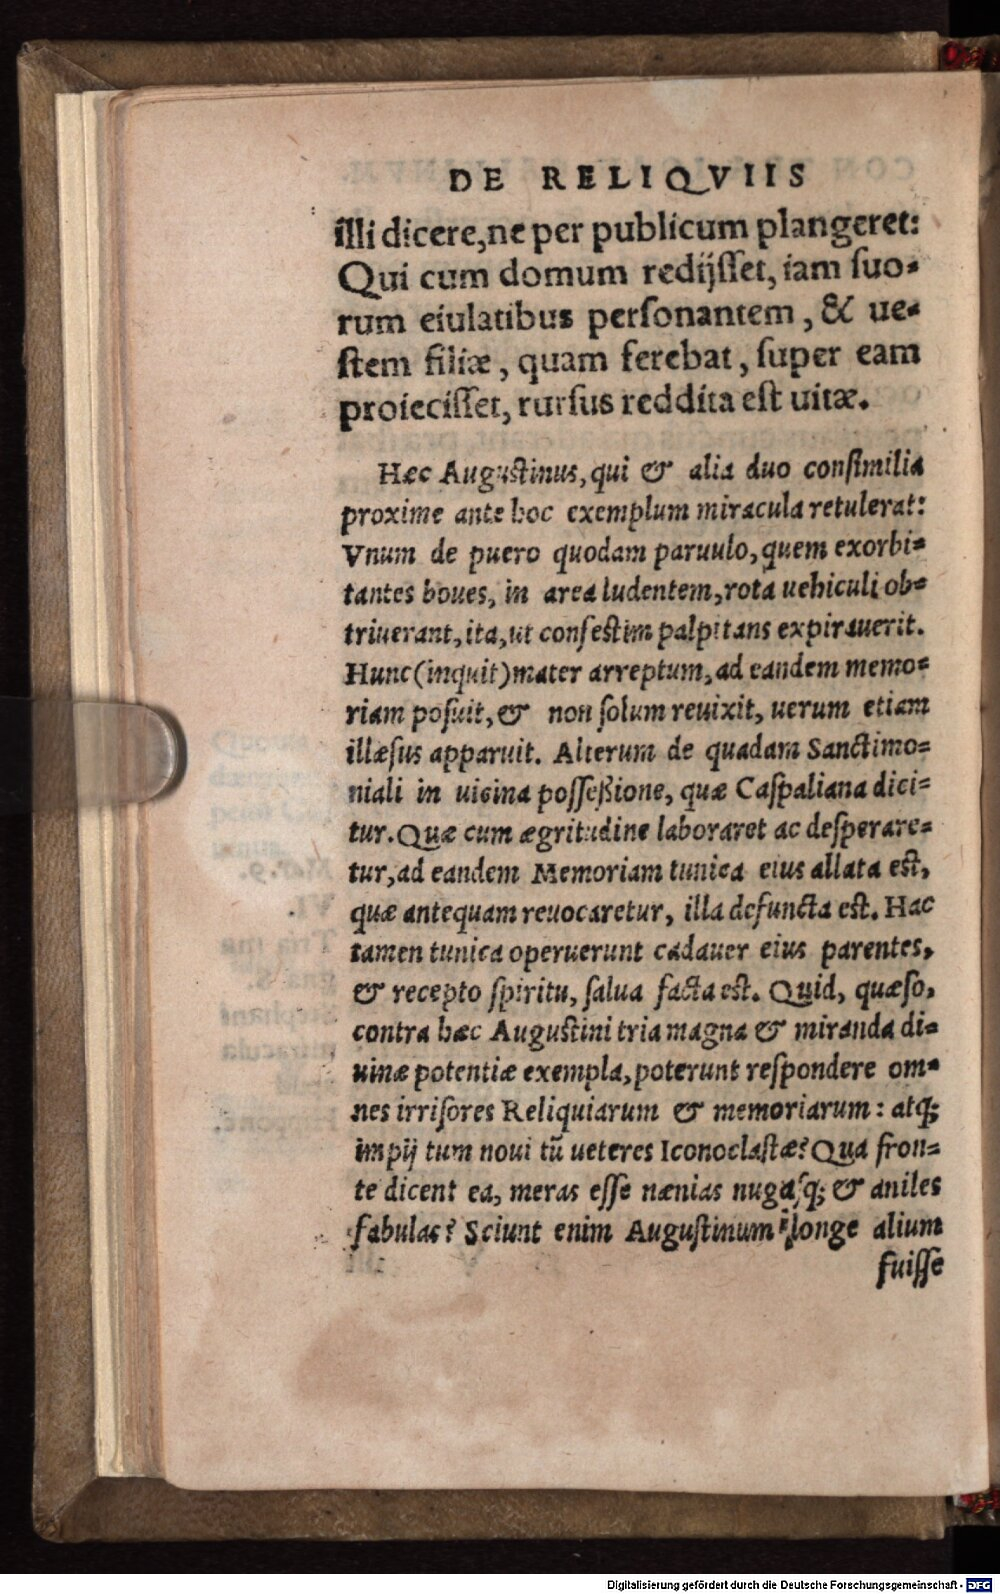 DE RELIQVIIS
illi dicere, ne per publicum plangeret:
Qui cum domum redijſſet, iam ſuo-
rum eiulatibus perſonantem, & ue-
ſtem filiæ, quam ferebat, ſuper eam
proieciſſet, rurſus reddita eſt uitæ.
Hæc Auguſtinus, qui & alia duo conſimilia
proxime ante hoc exemplum miracula retulerat:
Vnum de puero quodam paruulo, quem exorbi-
tantes boues, in area ludentem, rota uehiculi ob-
triuerant, ita, ut confeſtim palpitans expirauerit.
Hunc (inquit) mater arreptum, ad eandem memo-
riam poſuit, & non ſolum reuixit, uerum etiam
illæſus apparuit. Alterum de quadam Sanctimo-
niali in uicina poſſeßione, quæ Caſpaliana dici-
tur. Quæ cum ægritudine laboraret ac deſperare-
tur, ad eandem Memoriam tunica eius allata eſt,
quæ antequam reuocaretur, illa defuncta eſt. Hac
tamen tunica operuerunt cadauer eius parentes,
& recepto ſpiritu, ſalua facta eſt. Quid, quæſo,
contra hæc Auguſtini tria magna & miranda di-
uinæ potentiæ exempla, poterunt reſpondere om-
nes irriſores Reliquiarum & memoriarum: atq;
impij tum noui tũ ueteres Iconoclaſtæ? Qua fron-
te dicent ea, meras eſſe nænias nugaſq; & aniles
fabulas? Sciunt enim Auguſtinum longe alium
fuiſſe
Digitalisierung gefördert durch die Deutsche Forschungsgemeinschaft - DFG